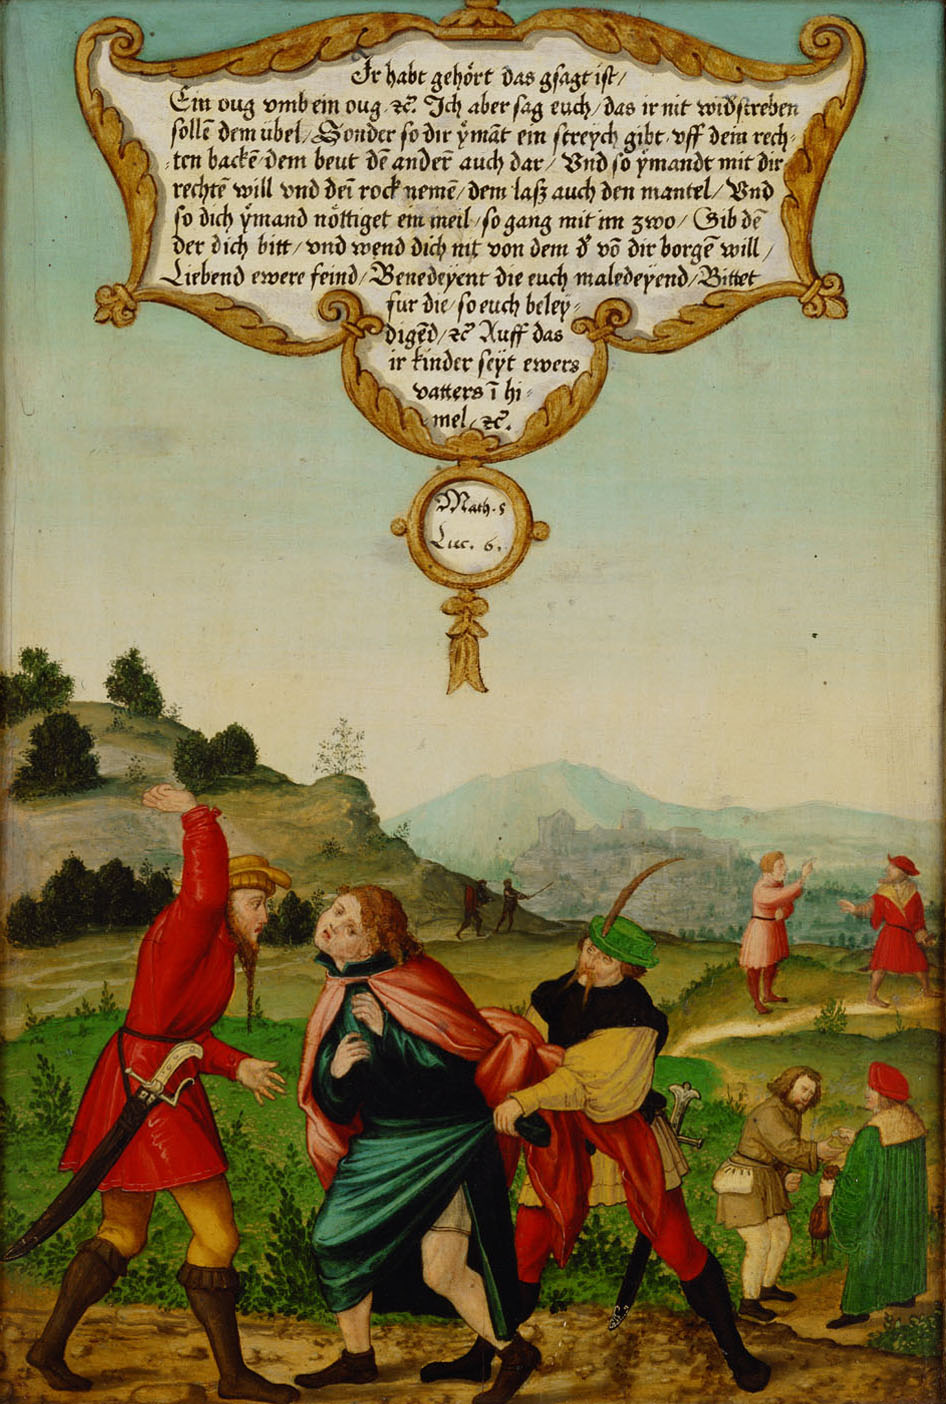 Ir habt gehört das gsagt ist/
Ein oug vmb ein oug ⁊c̄. Ich aber sag euch/ das ir nit widstreben
sollē dem übel/ Sonder so dir ÿmāt ein streych gibt/ vff dein rech-
ten backē/ dem beut dē anderē auch dar/ Vnd so ÿmandt mit dir
rechtē will vnd deī rock nemē/ dem laß auch den mantel/ Vnd
so dich ÿmand nöttiget ein meil/ so gang mit im zwo/ Gib dē
der dich bitt/ vnd wend dich nit von dem d' vō dir borgē will/
Liebend ewere feind/ Benedeÿent die euch maledeÿend/ Bittet
für die/ so euch beleÿ-
digēd/ ⁊c̄ Auff das
ir kinder seÿt ewers
vatters ī hi-
mel/ ⁊c̄.
Math. 5
Luc. 6.